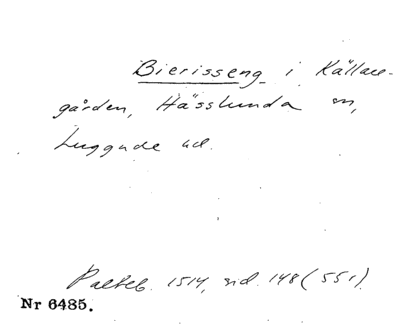 Bierisseng i Källare-
gården, Hässlunda sn,
Luggude hd.
Palteb. 1514, sid. 148 (551).
Nr 6485.